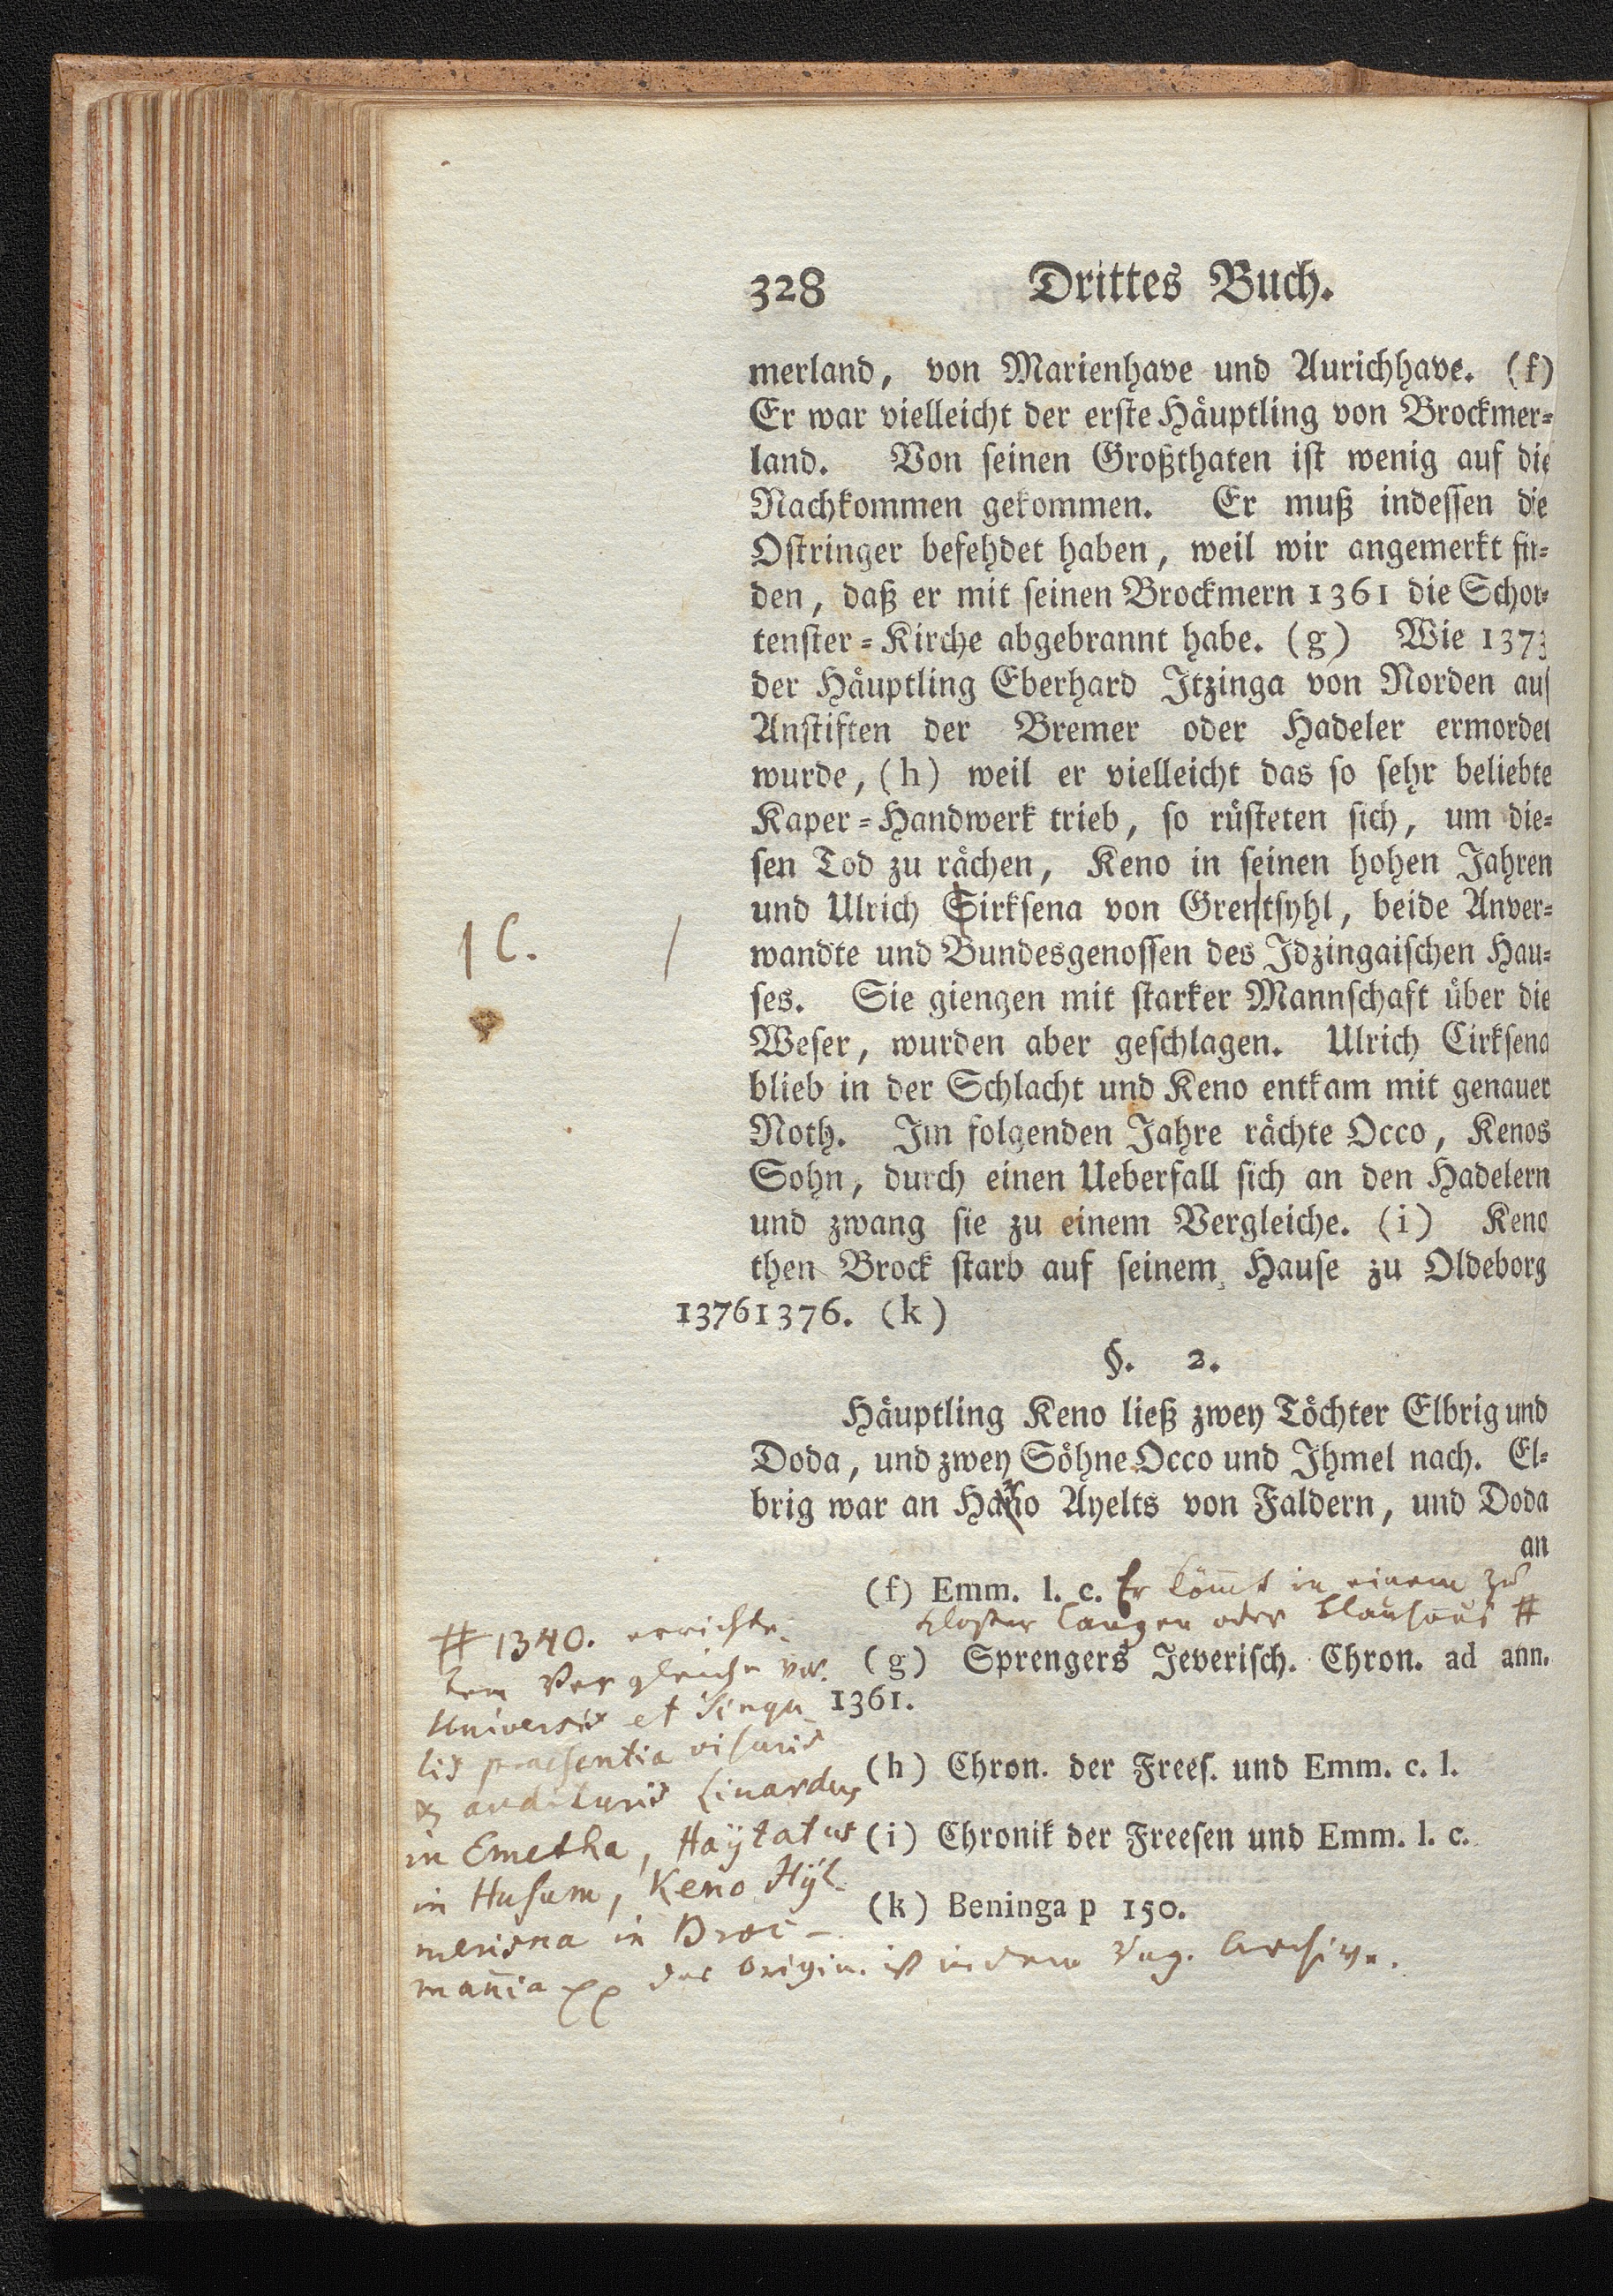 328 Drittes Buch.
merland, von Marienhave und Aurichhave. (f)
Er war vielleicht der erste Häuptling von Brockmer=
land. Von seinen Großthaten ist wenig auf die
Nachkommen gekommen. Er muß indessen die
Ostringer befehdet haben, weil wir angemerkt fin=
den, daß er mit seinen Brockmern 1361 die Schor=
tenster=Kirche abgebrannt habe. (g) Wie 1373
der Häuptling Eberhard Itzinga von Norden auf
Anstiften der Bremer oder Hadeler ermordet
wurde, (h) weil er vielleicht das so sehr beliebte
Kaper=Handwerk trieb, so rüsteten sich, um die=
sen Tod zu rächen, Keno in seinen hohen Jahren
und Ulrich Sirksena von Grentsyhl, beide Anver=
C.
wandte und Bundesgenossen des Idzingaischen Hau=
ses. Sie giengen mit starker Mannschaft über die
Weser, wurden aber geschlagen. Ulrich Cirksena
blieb in der Schlacht und Keno entkam mit genauer
Noth. Im folgenden Jahre rächte Occo, Kenos
Sohn, durch einen Ueberfall sich an den Hadelern
und zwang sie zu einem Vergleiche. (i) Keno
then Brock starb auf seinem Hause zu Oldeborg
1376 1376. (k)
§. 2.
Häuptling Keno ließ zwey Töchter Elbrig und
Doda, und zwey Söhne Occo und Ihmel nach. El=
brig war an Hano Ayelts von Faldern, und Doda
an
(f) Emm. l. c. Er kömmt in einem zu
Kloster Langen oder Blauhaus #
(g) Sprengers Jeverisch. Chron. ad ann.
1361.
(h) Chron. der Frees. und Emm. c. l.
(i) Chronik der Freesen und Emm. l. c.
(k) Beninga p 150.
# 1340. errichte-
tem Vergleiche vor.
Universis et singu-
lis praesentia visuris
& audituris Linardus
in Emetha, Haytatus
in Husum, Keno Hÿl-
merisna in Broc-
mannia das Origin. ist in dem Archive.